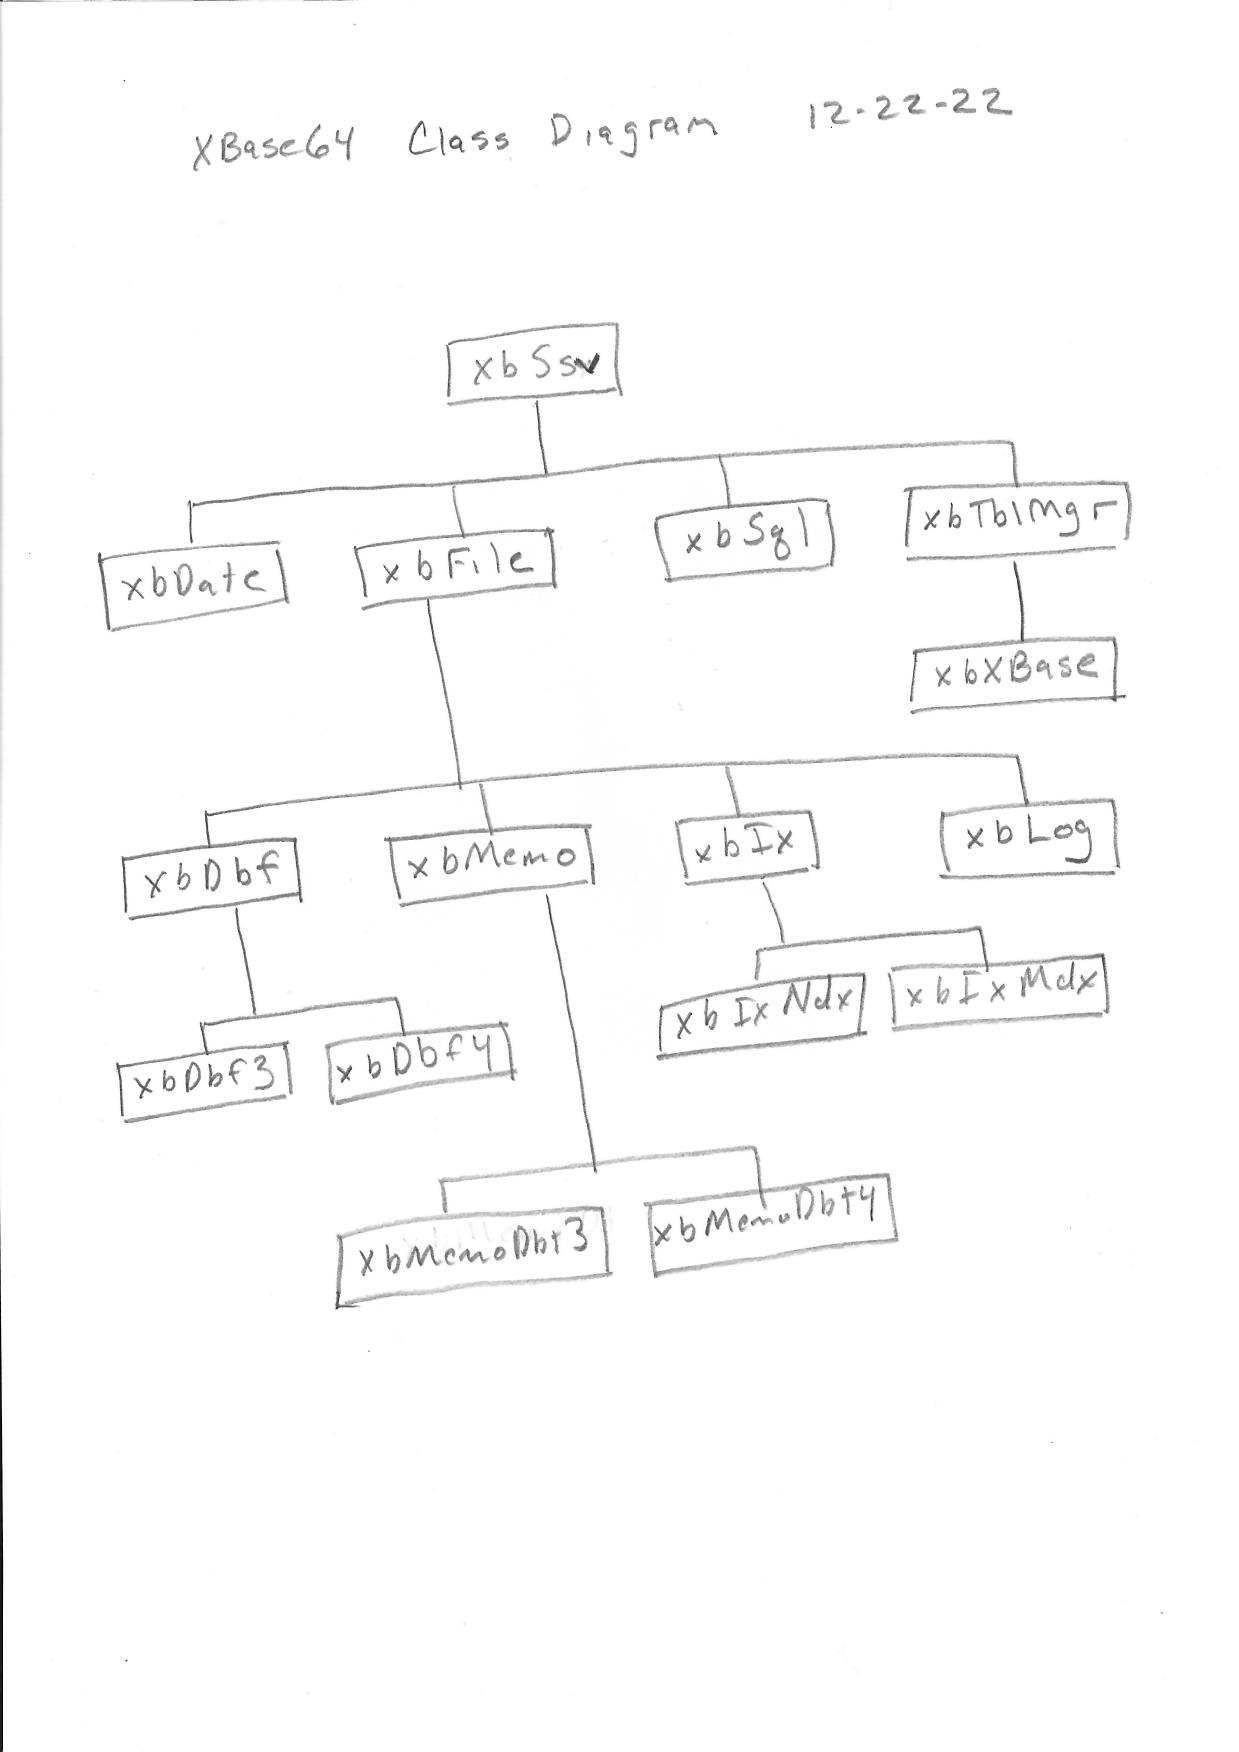 XBase64 Class Diagram 12-22-22
xbSsv
xbDate xbFile xbSql xbTblMgr
xbXBase
xbDbf xbMemo xbIx xbLog
xbIxNdx xbIxMdx
xbDbf3 xbDbf4
xbMemoDbt3 xbMemoDbt4